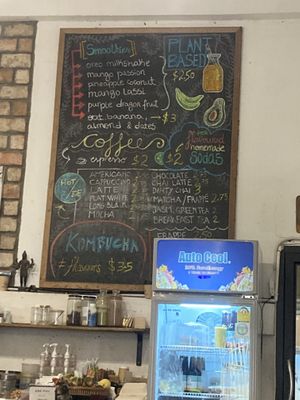 Smoothies
oreo milkshake
mango passion
pineapple coconut
mango lassi
purple dragon fruit
oat, banana,
almond & dates → $3
PLANT
BASED
$2.50
coffee
espresso $2
$2
flavoured
homemade
sodas
HOT
ICE
AMERICANO
CAPPUCCINO
LATTE
FLAT WHITE
LONG BLACK
MOCHA
CHOCOLATE
CHAI LATTE
DIRTY CHAI 3
MATCHA / FRAPPE 2.75
JASM. GREEN TEA 2
BREAKFAST TEA 2
FRAPPE 2.50
KOMBUCHA
flavours $3.5
Auto Cool.